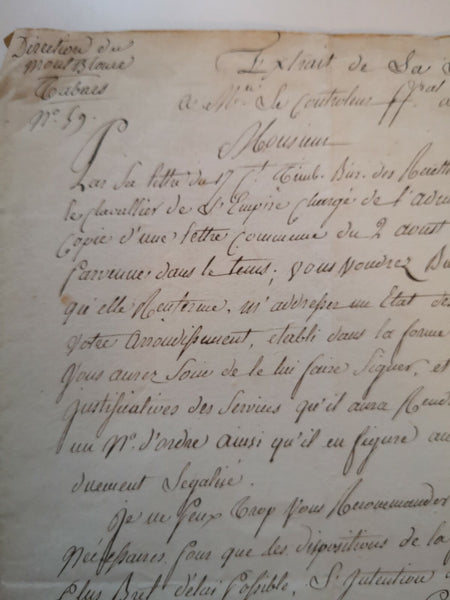 Direction du
Mont Blanc
Tabacs
N.º 59.
Extrait de La
a M.r Le Controleur
Monsieur
Par Sa lettre du 17 C.t Timb. Bur. des Recettes
le Chevallier de L'Empire Chargé de l'adm
Copie d'une lettre Commune du 2 aoust
Parvenue dans le tems; Vous Voudrez
qu'elle Renferme, m'addresser un Etat des
votre Arrondissement, établi dans la forme
Vous aurez Soin de le lui faire Signer, et
Justificatives des Services qu'il aura Rend
un N.º d'ordre ainsi qu'il en figure au
duement Legalisé.
Je ne Peux Trop Vous Recommander
Nécessaires Pour que les dispositions de la
Plus Bref délai Possible, L'Intention